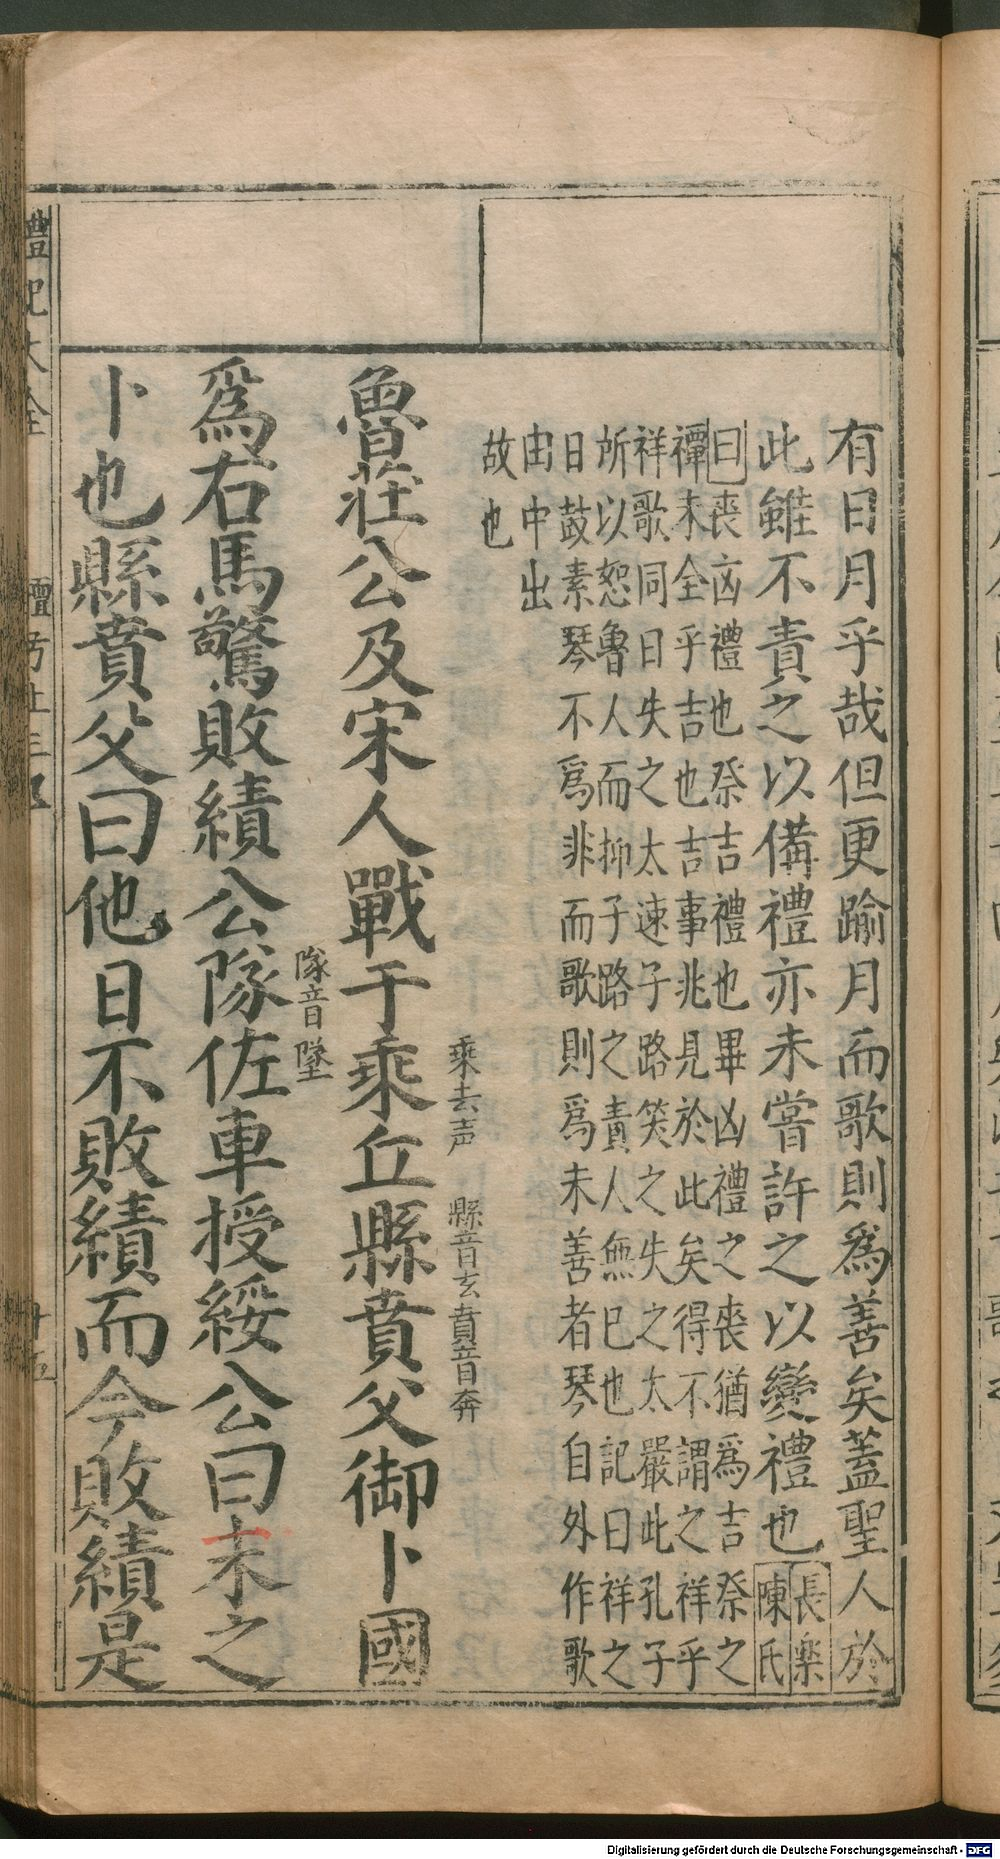 有日月乎哉但更踰月而歌則爲善矣蓋聖人於
此雖不責之以備禮亦未嘗許之以變禮也
長樂
陳氏
曰喪凶禮也祭吉禮也畢凶禮之喪猶爲吉祭之
禫未全乎吉也吉事兆見於此矣得不謂之祥乎
祥歌同日失之太速子路笑之失之太嚴此孔子
所以恕魯人而抑子路之責人無已也記曰祥之
日鼓素琴不爲非而歌則爲未善者琴自外作歌
由中出
故也
乘去声 縣音玄賁音奔
魯莊公及宋人戰于乘丘縣賁父御卜國
隊音墜
爲右馬驚敗績公隊佐車授綏公曰末之
卜也縣賁父曰他日不敗績而今敗績是
禮記大全 檀弓上三 十五
Digitalisierung gefördert durch die Deutsche Forschungsgemeinschaft - DFG